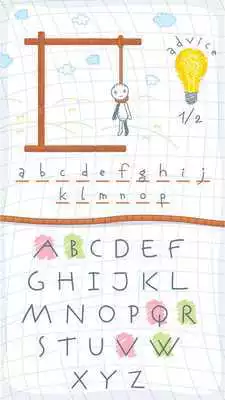 advice
1/2
a b c d e f g h i j
k l m n o p
A B C D E F
G H I J K L
M N O P Q R
S T U V W
X Y Z